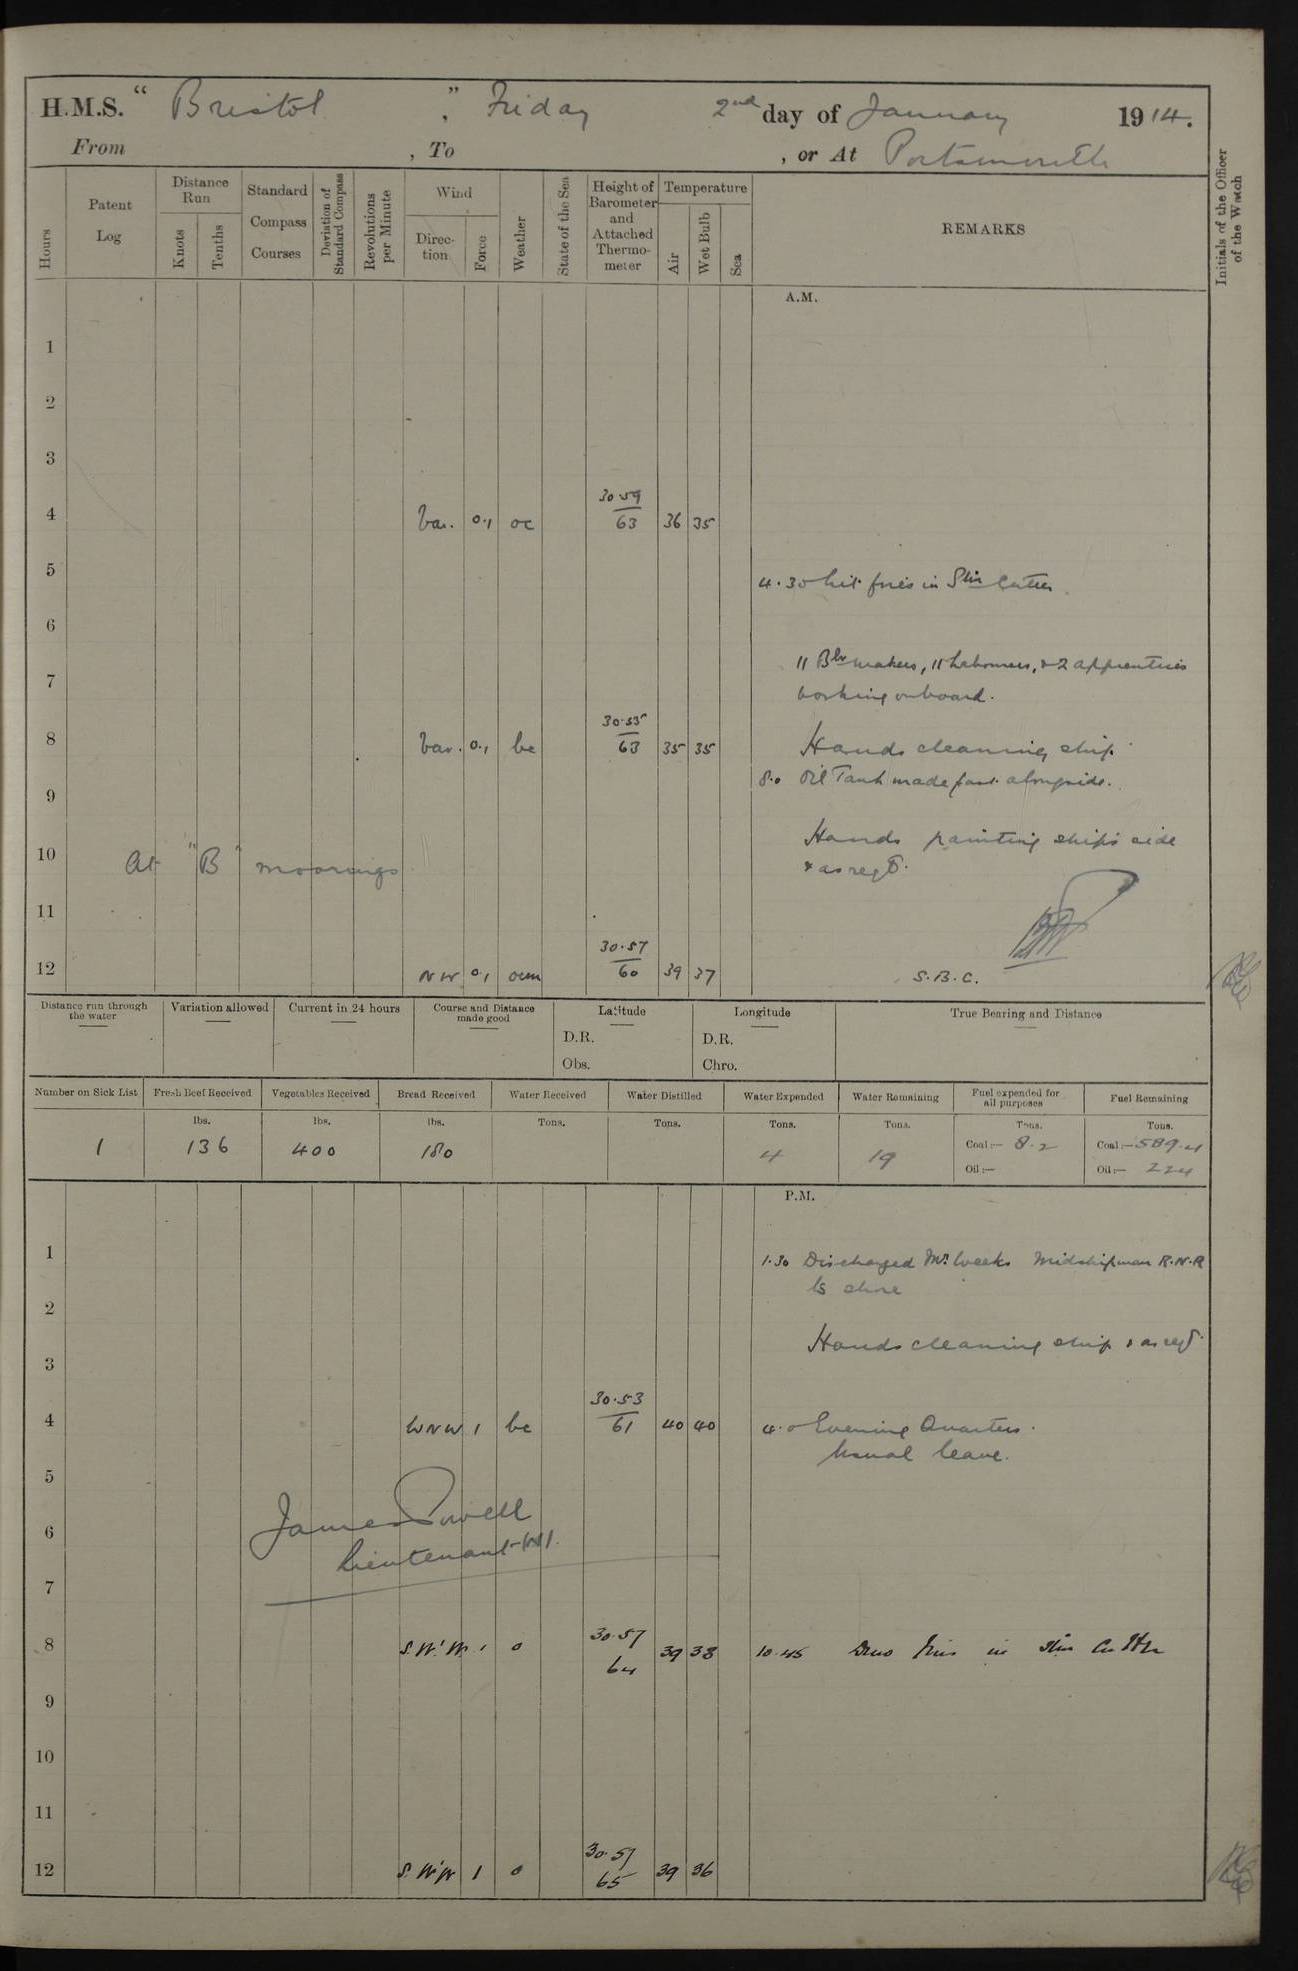 H.M.S. “ Bristol ”, Friday 2nd day of January 1914.
From , To , or At Portsmouth
Hours
Patent Log
Distance Run
Knots
Tenths
Standard Compass Courses
Deviation of Standard Compass
Revolutions per Minute
Wind
Direction
Force
Weather
State of the Sea
Height of Barometer and Attached Thermometer
Temperature
Air
Wet Bulb
Sea
REMARKS
Initials of the Officer of the Watch
A.M.
1
2
3
4 Var. 0.1 oc 30.59 63 36 35
5
4.30 Lit fires in Stm Cutter
6
11 Blr makers, 11 Labourers, & 2 apprentices
7
working onboard.
8 Var. 0.1 bc 30.55 63 35 35 Hands cleaning ship.
8.0 Oil Tank made fast alongside.
9
Hands painting ship's side
10 At "B" moorings
& as reqd.
11
12 NW 0.1 30.57 60 39 37 S.B.C.
Distance run through the water
Variation allowed
Current in 24 hours
Course and Distance made good
Latitude
D.R.
Obs.
Longitude
D.R.
Chro.
True Bearing and Distance
Number on Sick List
Fresh Beef Received
Vegetables Received
Bread Received
Water Received
Water Distilled
Water Expended
Water Remaining
Fuel expended for all purposes
Fuel Remaining
lbs. lbs. lbs. Tons. Tons. Tons. Tons. Tons. Tons.
1 136 400 180 4 19 Coal:— 8.2 Coal:— 589.4
Oil:— Oil:— 224
P.M.
1
1.30 Discharged Mr Weeks Midshipman R.N.R
to shore
2
Hands cleaning ship & as reqd.
3
4 WNW 1 bc 30.53 61 40 40 4.0 Evening Quarters.
Usual leave.
5
James Powell
6
Lieutenant
7
8 S.W'W 1 o 30.57 64 39 38 10.45 Drew fires in Stm Cutter
9
10
11
12 S.W'W 1 o 30.57 65 39 36